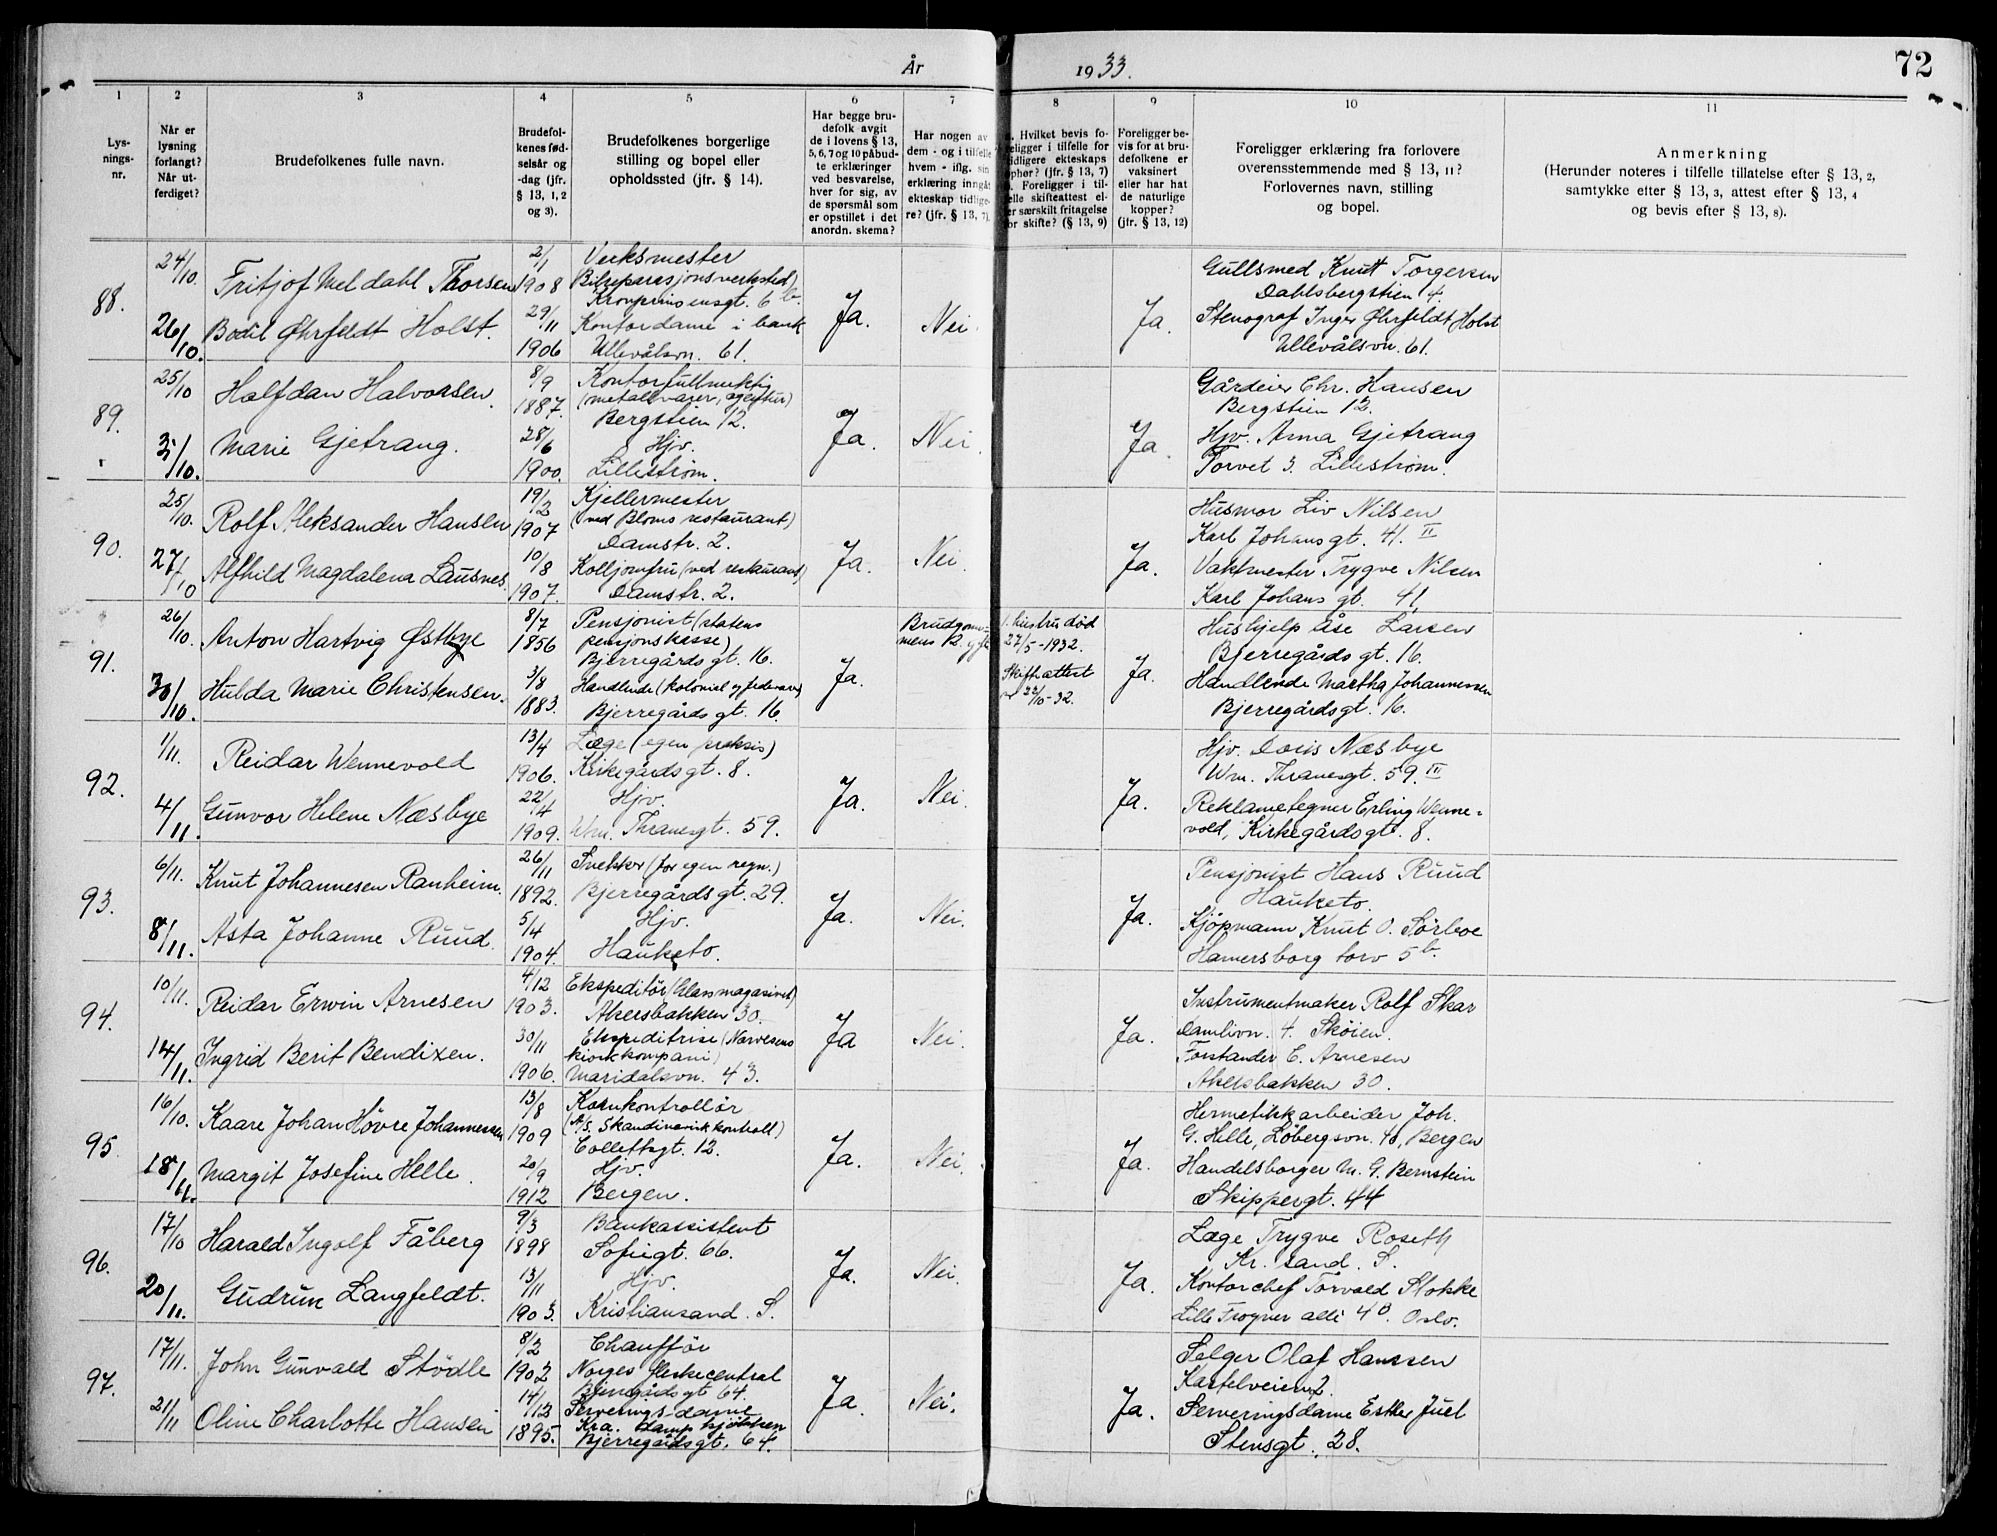 År 1933.
72
1 2 3 4 5 6 7 8 9 10 11
Lys-
nings-
nr.
Når er
lysning
forlangt?
Når ut-
ferdiget?
Brudefolkenes fulle navn.
Brudefol-
kenes fød-
selsår og
-dag (jfr.
§ 13, 1, 2
og 3).
Brudefolkenes borgerlige
stilling og bopel eller
opholdssted (jfr. § 14).
Har begge bru-
defolk avgit
de i lovens § 13,
5, 6, 7 og 10 påbud-
te erklæringer
ved besvarelse,
hver for sig, av
de spørsmål som
er opstillet i det
anordn. skema?
Har nogen av
dem - og i tilfelle
hvem - iflg. sin
erklæring inngåt
ekteskap tidlige-
re? (jfr. § 13, 7).
Hvilket bevis fo-
religger i tilfelle for
tidligere ekteskaps
ophør? (jfr. § 13, 7)
Foreligger i til-
felle skifteattest el-
ler særskilt fritagelse
for skifte? (§ 13, 9)
Foreligger be-
vis for at bru-
defolkene er
vaksinert
eller har hat
de naturlige
kopper?
(jfr. § 13, 12)
Foreligger erklæring fra forlovere
overensstemmende med § 13, 11?
Forlovernes navn, stilling
og bopel.
Anmerkning
(Herunder noteres i tilfelle tillatelse efter § 13, 2,
samtykke efter § 13, 3, attest efter § 13, 4
og bevis efter § 13, 8).
88.
24/10.
26/10.
Fritjof Meldahl Thorsen
Bodil Øhrfeldt Holst.
2/1
1908
29/11
1906
Verksmester
Bilreparasjonsverksted)
Kronprinsensgt. 6 b.
Kontordame i bank
Ullevålsvn. 61.
Ja.
Nei.
Ja.
Gullsmed Knut Torgersen
Dahlsbergstien 4.
Stenograf Inger Øhrfeldt Holst
Ullevålsvn. 61.
89.
25/10
3/10.
Halfdan Halvorsen.
Marie Gjetrang.
8/9
1887.
28/6
1900.
Kontorfullmektig
(metallvarer, agentur)
Bergstien 12.
Hjv.
Lillestrøm.
Ja.
Nei.
Ja.
Gårdeier Chr. Hansen
Bergstien 12.
Hjv. Anna Gjetrang
Torvet 3. Lillestrøm.
90.
25/10.
27/10
Rolf Aleksander Hansen
Alfhild Magdalena Lausnes
19/2
1907
10/8
1907.
Kjellermester
(ved Bloms restaurant)
Damstr. 2.
Kolljomfru (ved restaurant)
Damstr. 2.
Ja.
Nei.
Ja.
Husmor Liv Nilsen
Karl Johansgt. 41. II
Vaktmester Trygve Nilsen
Karl Johans gt. 41.
91.
26/10.
30/10.
Anton Hartvig Østbye
Hulda Marie Christensen.
8/7
1856
3/8
1883.
Pensjonist (statens
pensjonskasse)
Bjerregårdsgt. 16.
Handlende (kolonial og fedevarer)
Bjerregårdsgt. 16.
Ja.
Brudgom-
mens 2. gift
1. hustru død
27/5-1932.
Skifteattest
22/10-32.
Ja.
Hushjelp Åse Larsen
Bjerregårdsgt. 16.
Handlende Martha Johannessen
Bjerregårdsgt. 16.
92.
1/11.
4/11.
Reidar Wennevold
Gunvor Helene Næsbye
13/4
1906.
22/4
1909.
Læge (egen praksis)
Kirkegårdsgt. 8.
Hjv.
Wm. Thranesgt. 59.
Ja.
Nei.
Ja.
Hjv. Doris Næsbye
Wm. Thranesgt. 59. III
Reklametegner Erling Wenne-
vold, Kirkegårdsgt. 8.
93.
6/11.
8/11.
Knut Johannesen Ranheim.
Asta Johanne Ruud.
26/11
1892.
5/4
1904.
Snekker (for egen regn.)
Bjerregårdsgt. 29.
Hjv.
Hauketo.
Ja.
Nei.
Ja.
Pensjonist Hans Ruud
Hauketo.
Kjøpmann Knut O. Sørboe
Hamersborg torv 5 b.
94.
10/11.
14/11.
Reidar Erwin Arnesen
Ingrid Berit Bendixen.
4/12
1903.
30/11
1906.
Ekspeditør (Glasmagasinet)
Akersbakken 30.
Ekspeditrise (Narvesens
kioskkompani)
Maridalsvn. 43.
Ja
Nei.
Ja.
Instrumentmaker Rolf Skar
Damlivn. 4. Skøien.
Forstander E. Arnesen
Akersbakken 30.
95.
16/10.
18/11.
Kaare Johan Høvre Johannessen
Margit Josefine Helle.
13/8
1909
20/9
1912
Kornkontrollør
(A/S. Skandinavisk kontroll)
Collettsgt. 12.
Hjv.
Bergen.
Ja.
Nei.
Ja.
Hermetikkarbeider Joh.
G. Helle, Løbergsvn. 40, Bergen
Handelsborger M. G. Bernstein
Skippergt. 44
96.
17/10
20/11.
Harald Ingolf Fåberg
Gudrun Langfeldt.
9/3
1898
13/11
1903.
Bankassistent
Sofiegt. 66.
Hjv.
Kristiansand. S.
Ja.
Nei.
Ja.
Læge Trygve Roseth
Kr. sand. S.
Kontorchef Torvald Stokke
Lille Frogner allé 4 B. Oslo.
97.
17/11.
21/11
John Gunvald Stødle
Oline Charlotte Hansen
8/2
1902
14/12
1895.
Chauffør
Norges fleskecentral
Bjerregårdsgt 64.
Serveringsdame
Kra. dampkjøkken
Bjerregårdsgt. 64.
Ja.
Nei.
Ja.
Selger Olaf Hanssen
Kastelveien 2.
Serveringsdame Esther Juel
Stensgt. 28.